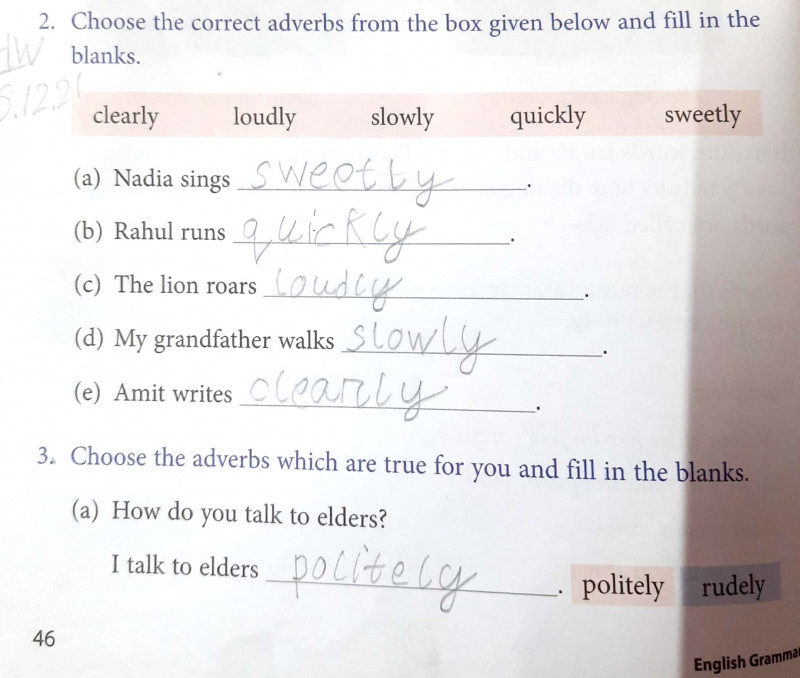 2. Choose the correct adverbs from the box given below and fill in the
HW blanks.
5.12.21
clearly loudly slowly quickly sweetly
(a) Nadia sings sweetly.
(b) Rahul runs quickly.
(c) The lion roars loudly.
(d) My grandfather walks slowly.
(e) Amit writes clearly.
3. Choose the adverbs which are true for you and fill in the blanks.
(a) How do you talk to elders?
I talk to elders politely. politely rudely
46
English Grammar